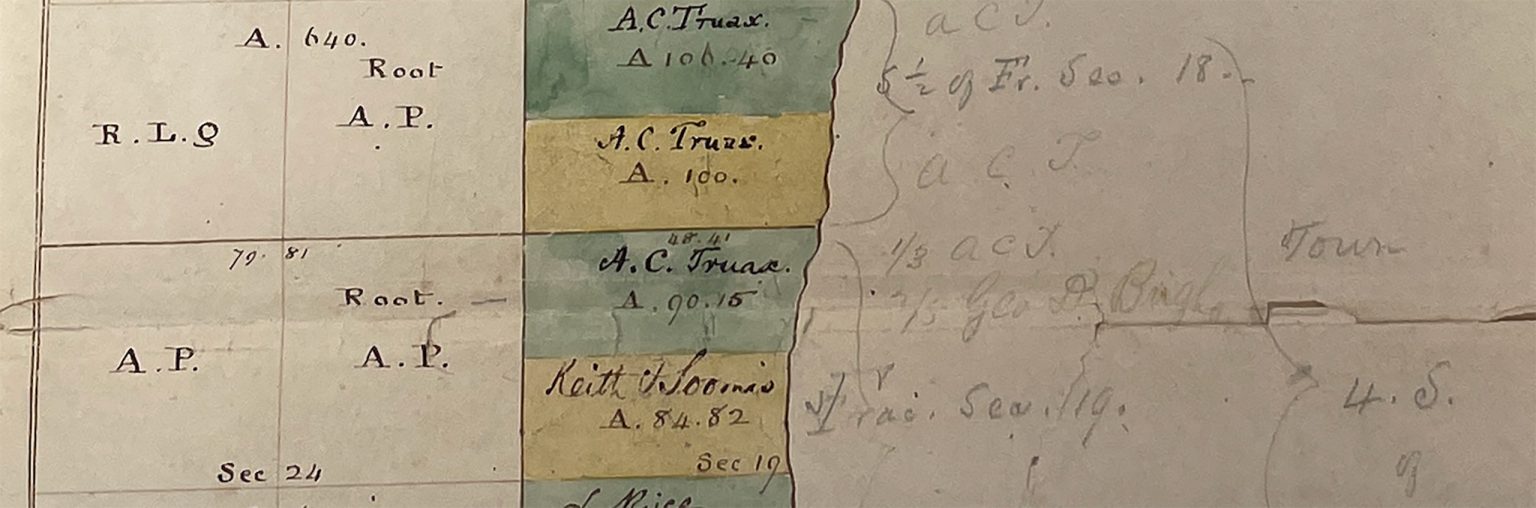 A. 640.
Root
R. L. Q
A. P.
A. C. Truax.
A 106.40
A. C. Truax.
A. 100.
a C T.
S ½ of Fr. Sec. 18.
a C T.
79. 81
Root.
A. P.
A. P.
Sec 24
48.41
A. C. Truax.
A. 90.15
Keith & Loomis
A. 84.82
Sec 19
Rice
1/3 a C T.
Geo
Frac. Sec. 19.
Town
4. S.
of